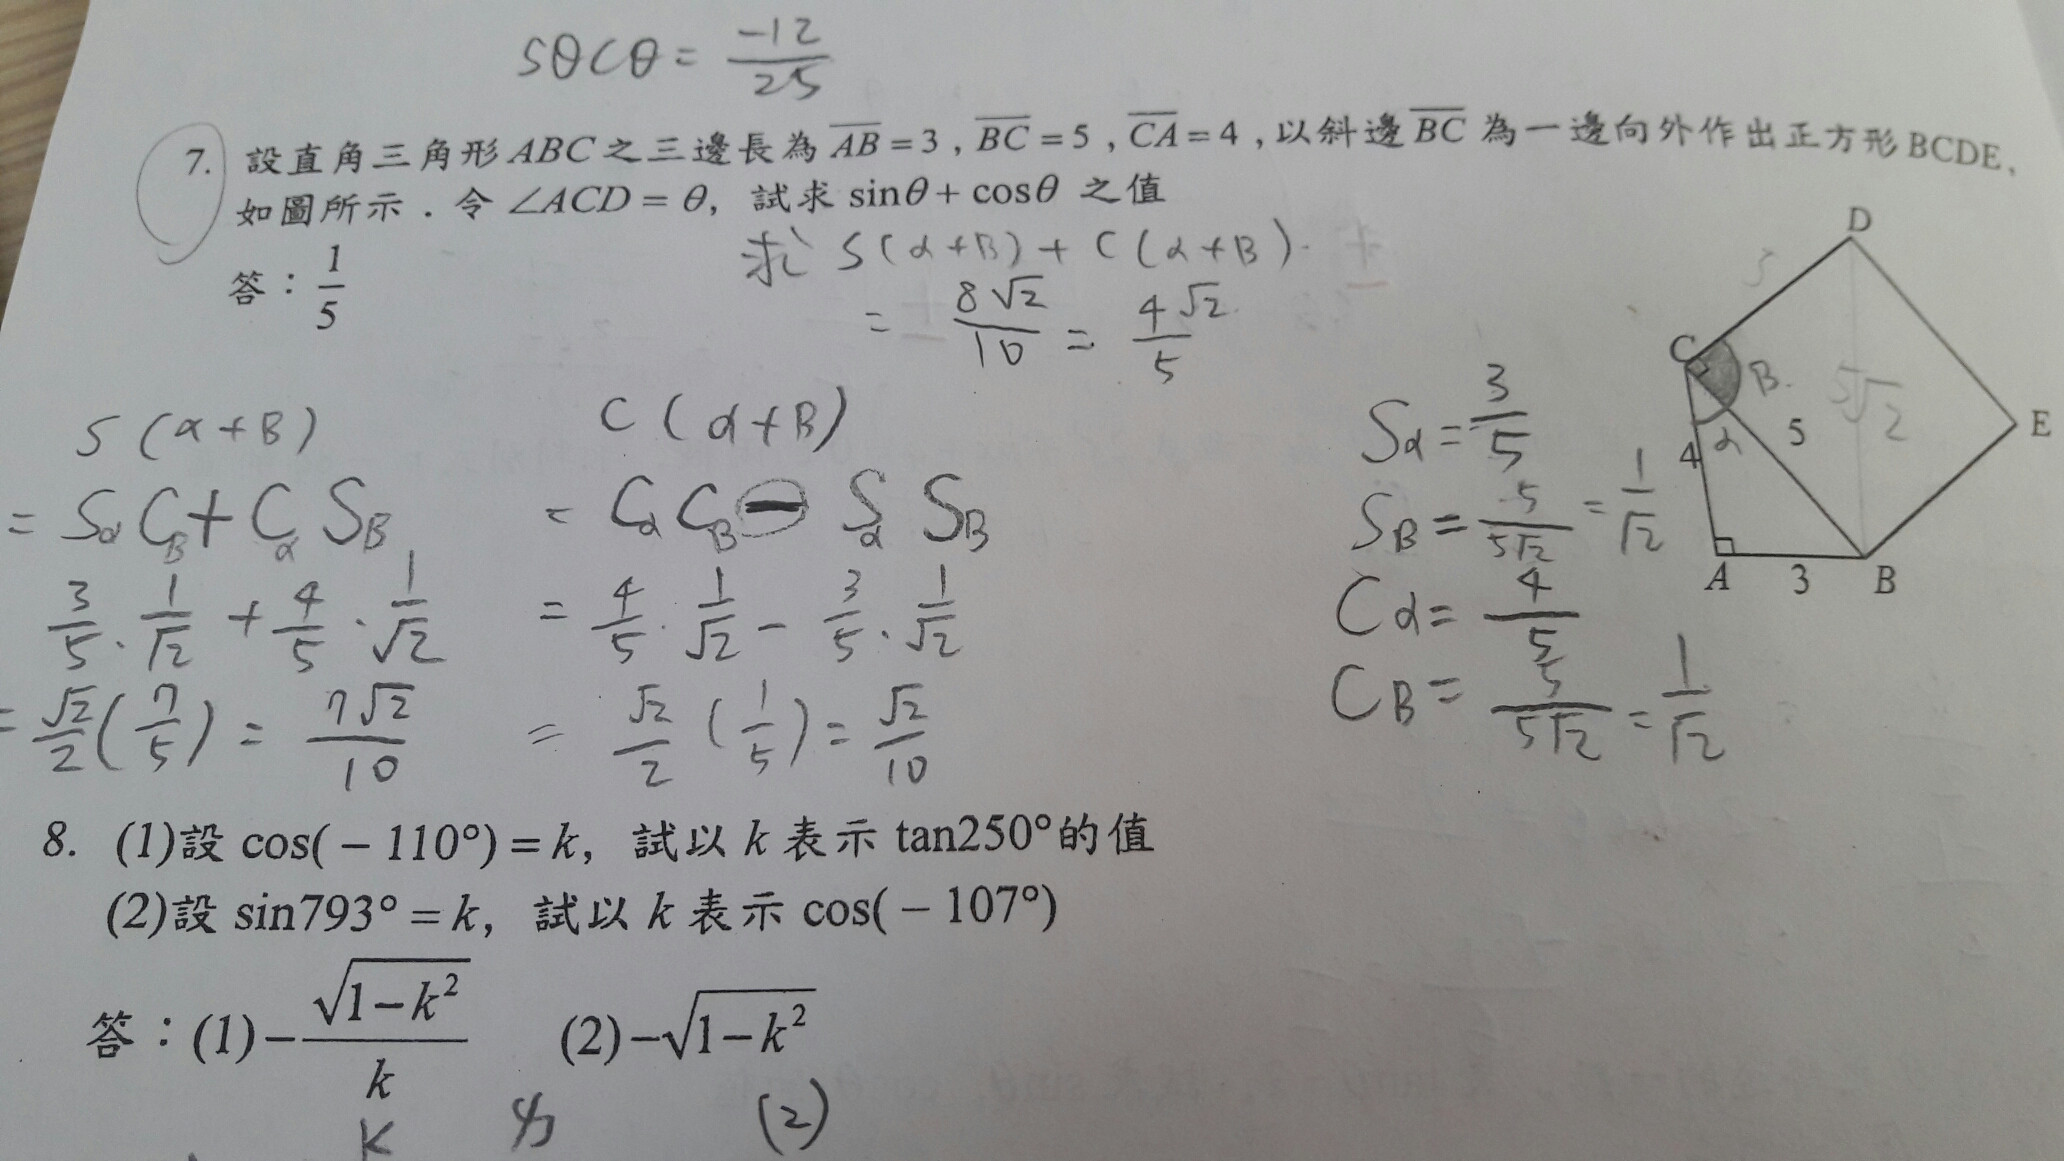 SθCθ = -12/25
7. 設直角三角形ABC之三邊長為 AB = 3 , BC = 5 , CA = 4 , 以斜邊 BC 為一邊向外作出正方形BCDE,
如圖所示 . 令 ∠ACD = θ, 試求 sinθ + cosθ 之值
答 : 1/5
求 S(α+B) + C(α+B).
= 8√2/10 = 4√2/5
D
C
B
5√2
E
4
α
5
A
3
B
S(α+B)
= SαCB + CαSB
3/5 · 1/√2 + 4/5 · 1/√2
= √2/2 (7/5) = 7√2/10
C(α+B)
= CαCB − SαSB
= 4/5 · 1/√2 − 3/5 · 1/√2
= √2/2 (1/5) = √2/10
Sα = 3/5
SB = 5/5√2 = 1/√2
Cα = 4/5
CB = 5/5√2 = 1/√2
8. (1)設 cos( − 110°) = k, 試以 k 表示 tan250°的值
(2)設 sin793° = k, 試以 k 表示 cos( − 107°)
答 : (1) −√(1−k²)/k (2) −√(1−k²)
K
(2)